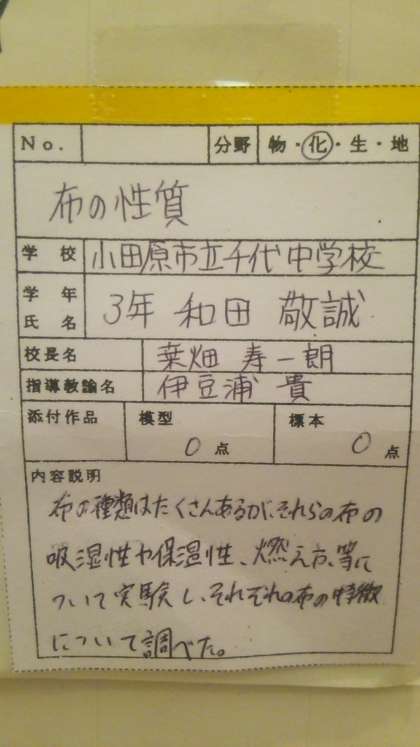 No. 分野 物・化・生・地
布の性質
学校 小田原市立千代中学校
学年 3年 和田 敬誠
氏名
校長名 葉畑 寿一朗
指導教諭名 伊豆浦 貴
添付作品 模型 0点 標本 0点
内容説明
布の種類はたくさんあるが、それらの布の
吸湿性や保温性、燃え方、等に
ついて実験し、それぞれの布の特徴
について調べた。